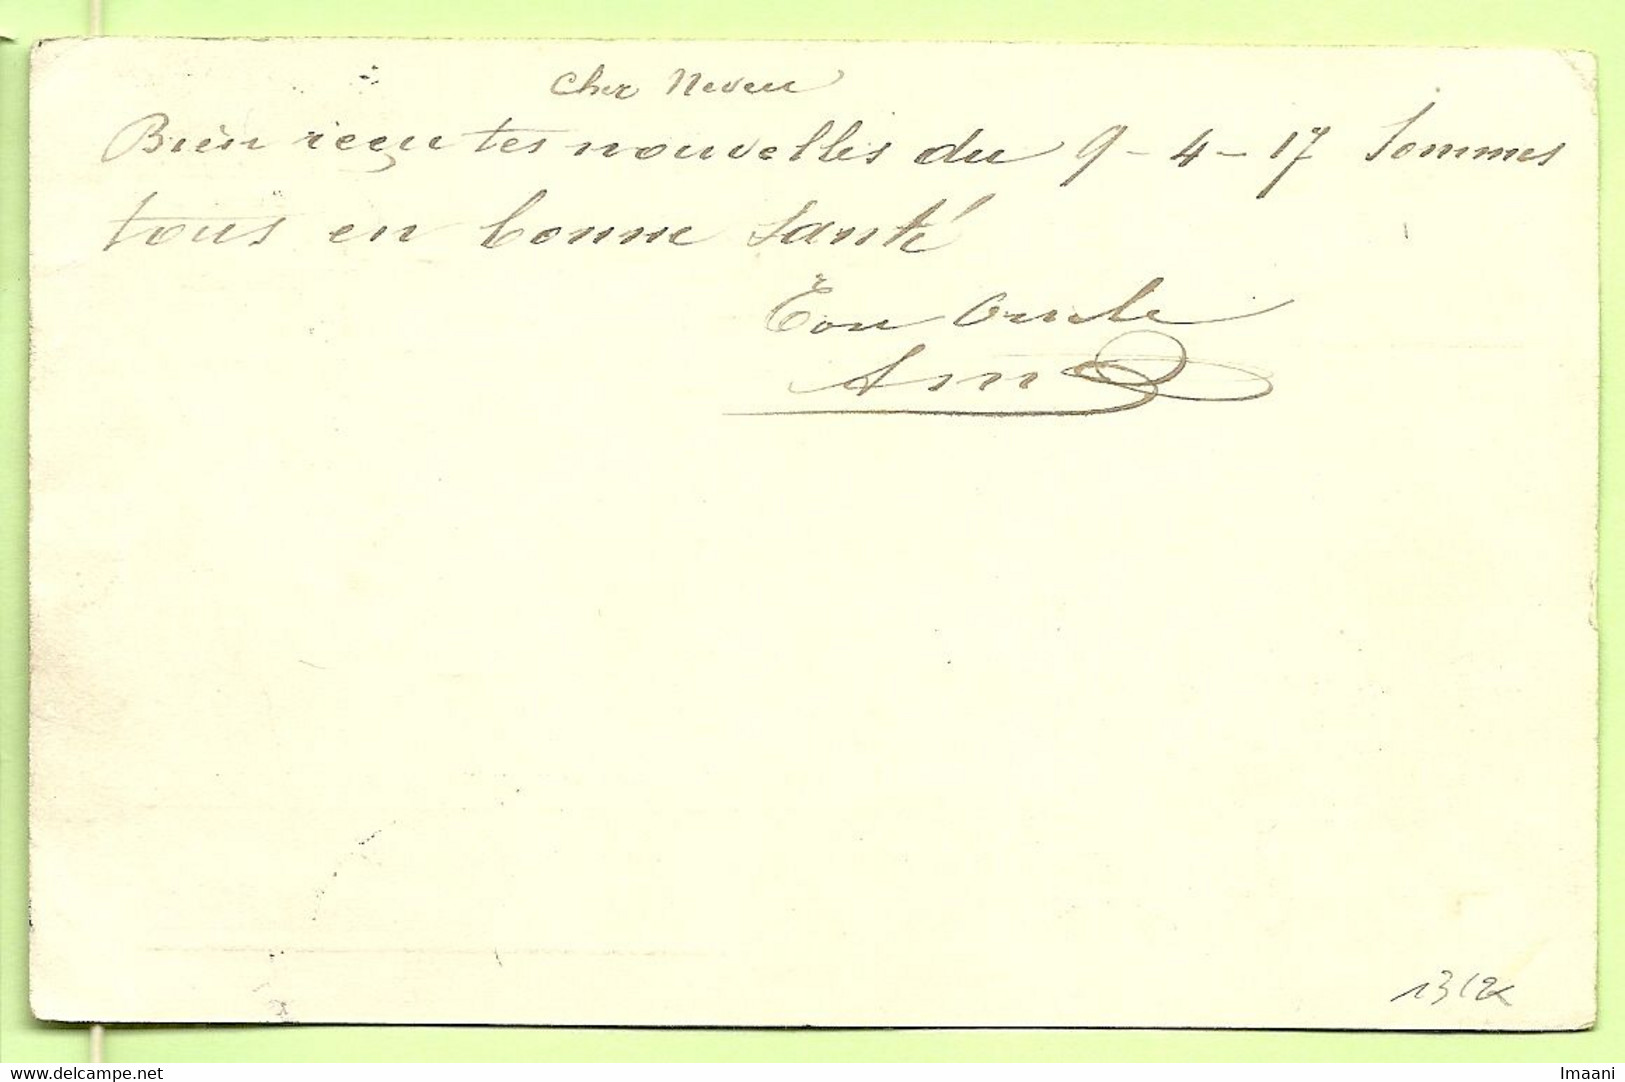 Cher Neveu
Bien reçu tes nouvelles du 9-4-17 Sommes
tous en bonne santé
Ton Oncle
www.delcampe.net
Imaani